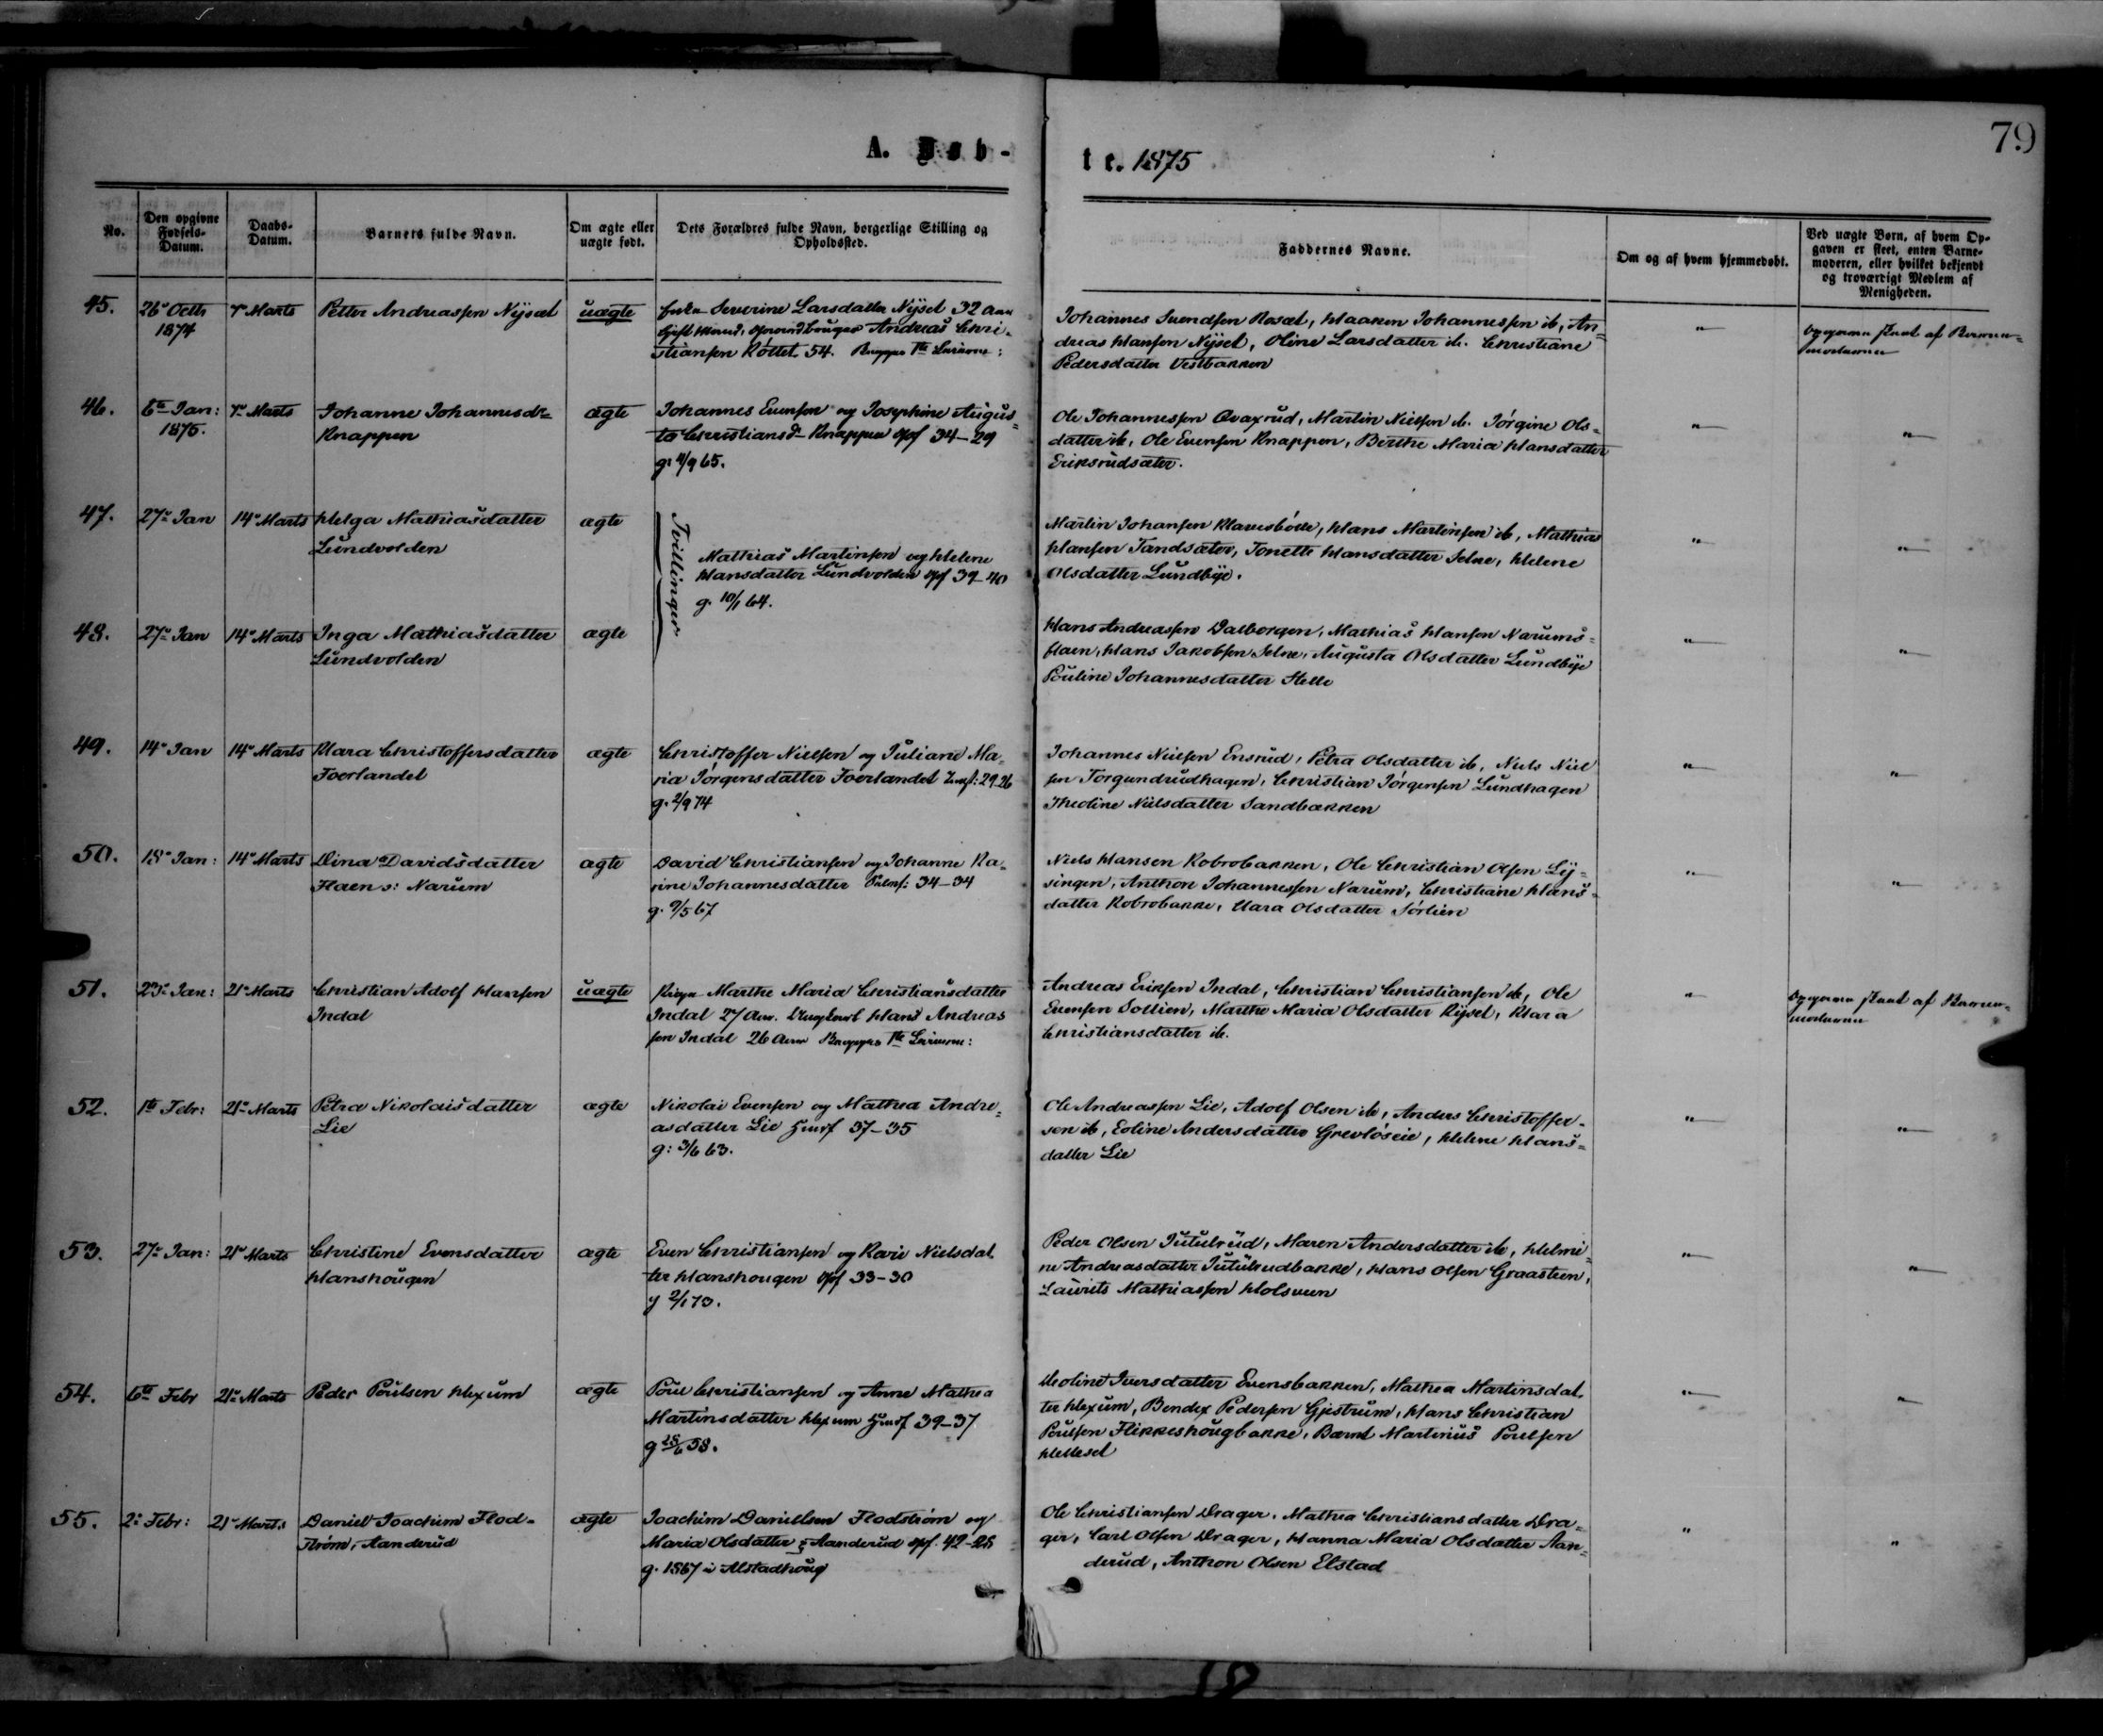 79
A. Døb-
te. 1875
No.
Den opgivne
Fødsels-
Datum.
Daabs-
Datum.
Barnets fulde Navn.
Om ægte eller
uægte født.
Dets Forældres fulde Navn, borgerlige Stilling og
Opholdssted.
Faddernes Navne.
Om og af hvem hjemmedøbt.
Ved uægte Børn, af hvem Op-
gaven er skeet, enten Barne-
moderen, eller hvilket bekjendt
og troværdigt Medlem af
Menigheden.
45.
26 Octb
1874
7 Marts
Petter Andreassen Nyset
uægte
Severine Larsdatter Nyset 32 Aar
Andreas Chri-
stiansen 54.
Johannes Svendsen Røset, Haaken Johannessen ib, An-
dreas Hansen Nyset, Oline Larsdatter ib. Christiane
Pedersdatter Vestbakken
"
Opgaven skeet af Barne-
moderen
46.
6te Jan:
1875.
7 Marts
Johanne Johannesdr
Knappen
ægte
Johannes Evensen og Josephine Augus-
ta Christiansdr Knappen 34-29
g. 4/9 65.
Ole Johannessen Qvaxrud, Martin Nielsen ib. Jørgine Ols-
datter ib, Ole Evensen Knappen, Berthe Maria Hansdatter
Eriksrudsæter.
"
"
47.
27 Jan
14 Marts
Helga Mathiasdatter
Lundvolden
ægte
Tvillinger
Mathias Martinsen og Helene
Hansdatter Lundvolden 39-40
g. 10/1 64.
Martin Johansen Klavesbøle, Hans Martinsen ib, Mathias
Hansen Tandsæter, Tonette Hansdatter Selne, Helene
Olsdatter Lundbye.
"
"
48.
27 Jan
14 Marts
Inga Mathiasdatter
Lundvolden
ægte
Hans Andreassen Dalborgen, Mathias Hansen Narums-
flaen, Hans Jakobsen Selne, Augusta Olsdatter Lundbye
Pauline Johannesdatter Helle
"
"
49.
14 Jan
14 Marts
Klara Christoffersdatter
Toerlandet
ægte
Christoffer Nielsen og Juliane Ma-
ria Jørgensdatter Toerlandet 29-26
g. 2/9 74
Johannes Nielsen Ensrud, Petra Olsdatter ib, Niels Niel
sen Torgundrudhagen, Christian Jørgensen Lundhagen
Theoline Nielsdatter Sandbakken
"
"
50.
18 Jan:
14 Marts
Dina Davidsdatter
Flaen s: Narum
ægte
David Christiansen og Johanne Ka-
rine Johannesdatter 34-34
g. 9/5 67
Niels Hansen Kobrobakken, Ole Christian Olsen Ly-
singen, Anthon Johannessen Narum, Christiane Hans-
datter Kobrobakke, Clara Olsdatter Sørlien
"
"
51.
23 Jan:
21 Marts
Christian Adolf Hansen
Indal
uægte
Pigen Marthe Maria Christiansdatter
Indal 27 Aar. Ungkarl Hans Andreas
sen Indal 26 Aar
Andreas Eriksen Indal, Christian Christiansen ib, Ole
Evensen Sollien, Marthe Maria Olsdatter Rysel, Klara
Christiansdatter ib.
"
Opgaven skeet af Barne-
moderen
52.
1te Febr:
21 Marts
Petra Nikolaisdatter
Lie
ægte
Nikolai Evensen og Mathea Andre-
asdatter Lie 37-35
g: 3/6 63.
Ole Andreassen Lie, Adolf Olsen ib, Anders Christoffer-
sen ib, Eoline Andersdatter Grevløseie, Helene Hans-
datter Lie
"
"
53.
27 Jan:
21 Marts
Christine Evensdatter
Hanshougen
ægte
Even Christiansen og Kari Nielsdat
ter Hanshougen 33-30
g 2/1 73.
Peder Olsen Jutulrud, Maren Andersdatter ib, Helmi-
ne Andreasdatter Jutulrudbakke, Hans Olsen Graasteen,
Laurits Mathiassen Holsveen
"
"
54.
6te Febr
21 Marts
Peder Poulsen Hexum
ægte
Poul Christiansen og Anne Mathea
Martinsdatter Hexum 39-37
g 28/6 58.
Iversdatter Evensbakken, Mathea Martinsdat
ter Hexum, Bendix Pedersen Gjestrum, Hans Christian
Poulsen Flikkeshougbakke, Bernt Martinius Poulsen
Hellesel
"
"
55.
2 Febr:
21 Marts
Daniel Joachim Flod-
strøm, Aanderud
ægte
Joachim Danielsen Flodstrøm og
Maria Olsdatter Aanderud 42-28
g. 1867 i Alstadhoug
Ole Christiansen Drager, Mathea Christiansdatter Dra-
ger, Carl Olsen Drager, Hanna Maria Olsdatter Aan-
derud, Anthon Olsen Elstad
"
"